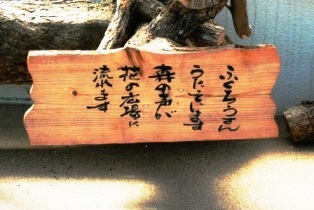 ふくろうさん
うたています
森の声が
花の広場に
流れます